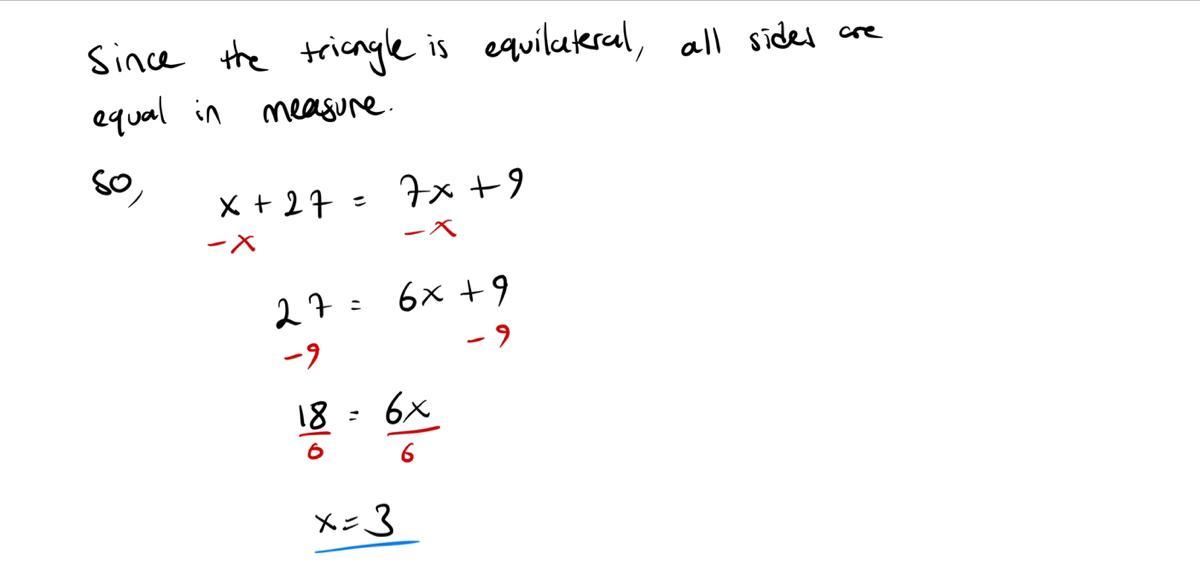 Since the triangle is equilateral, all sides are
equal in measure.
So,
x + 27 = 7x + 9
-x -x
27 = 6x + 9
-9 -9
18 = 6x
6 6
x = 3